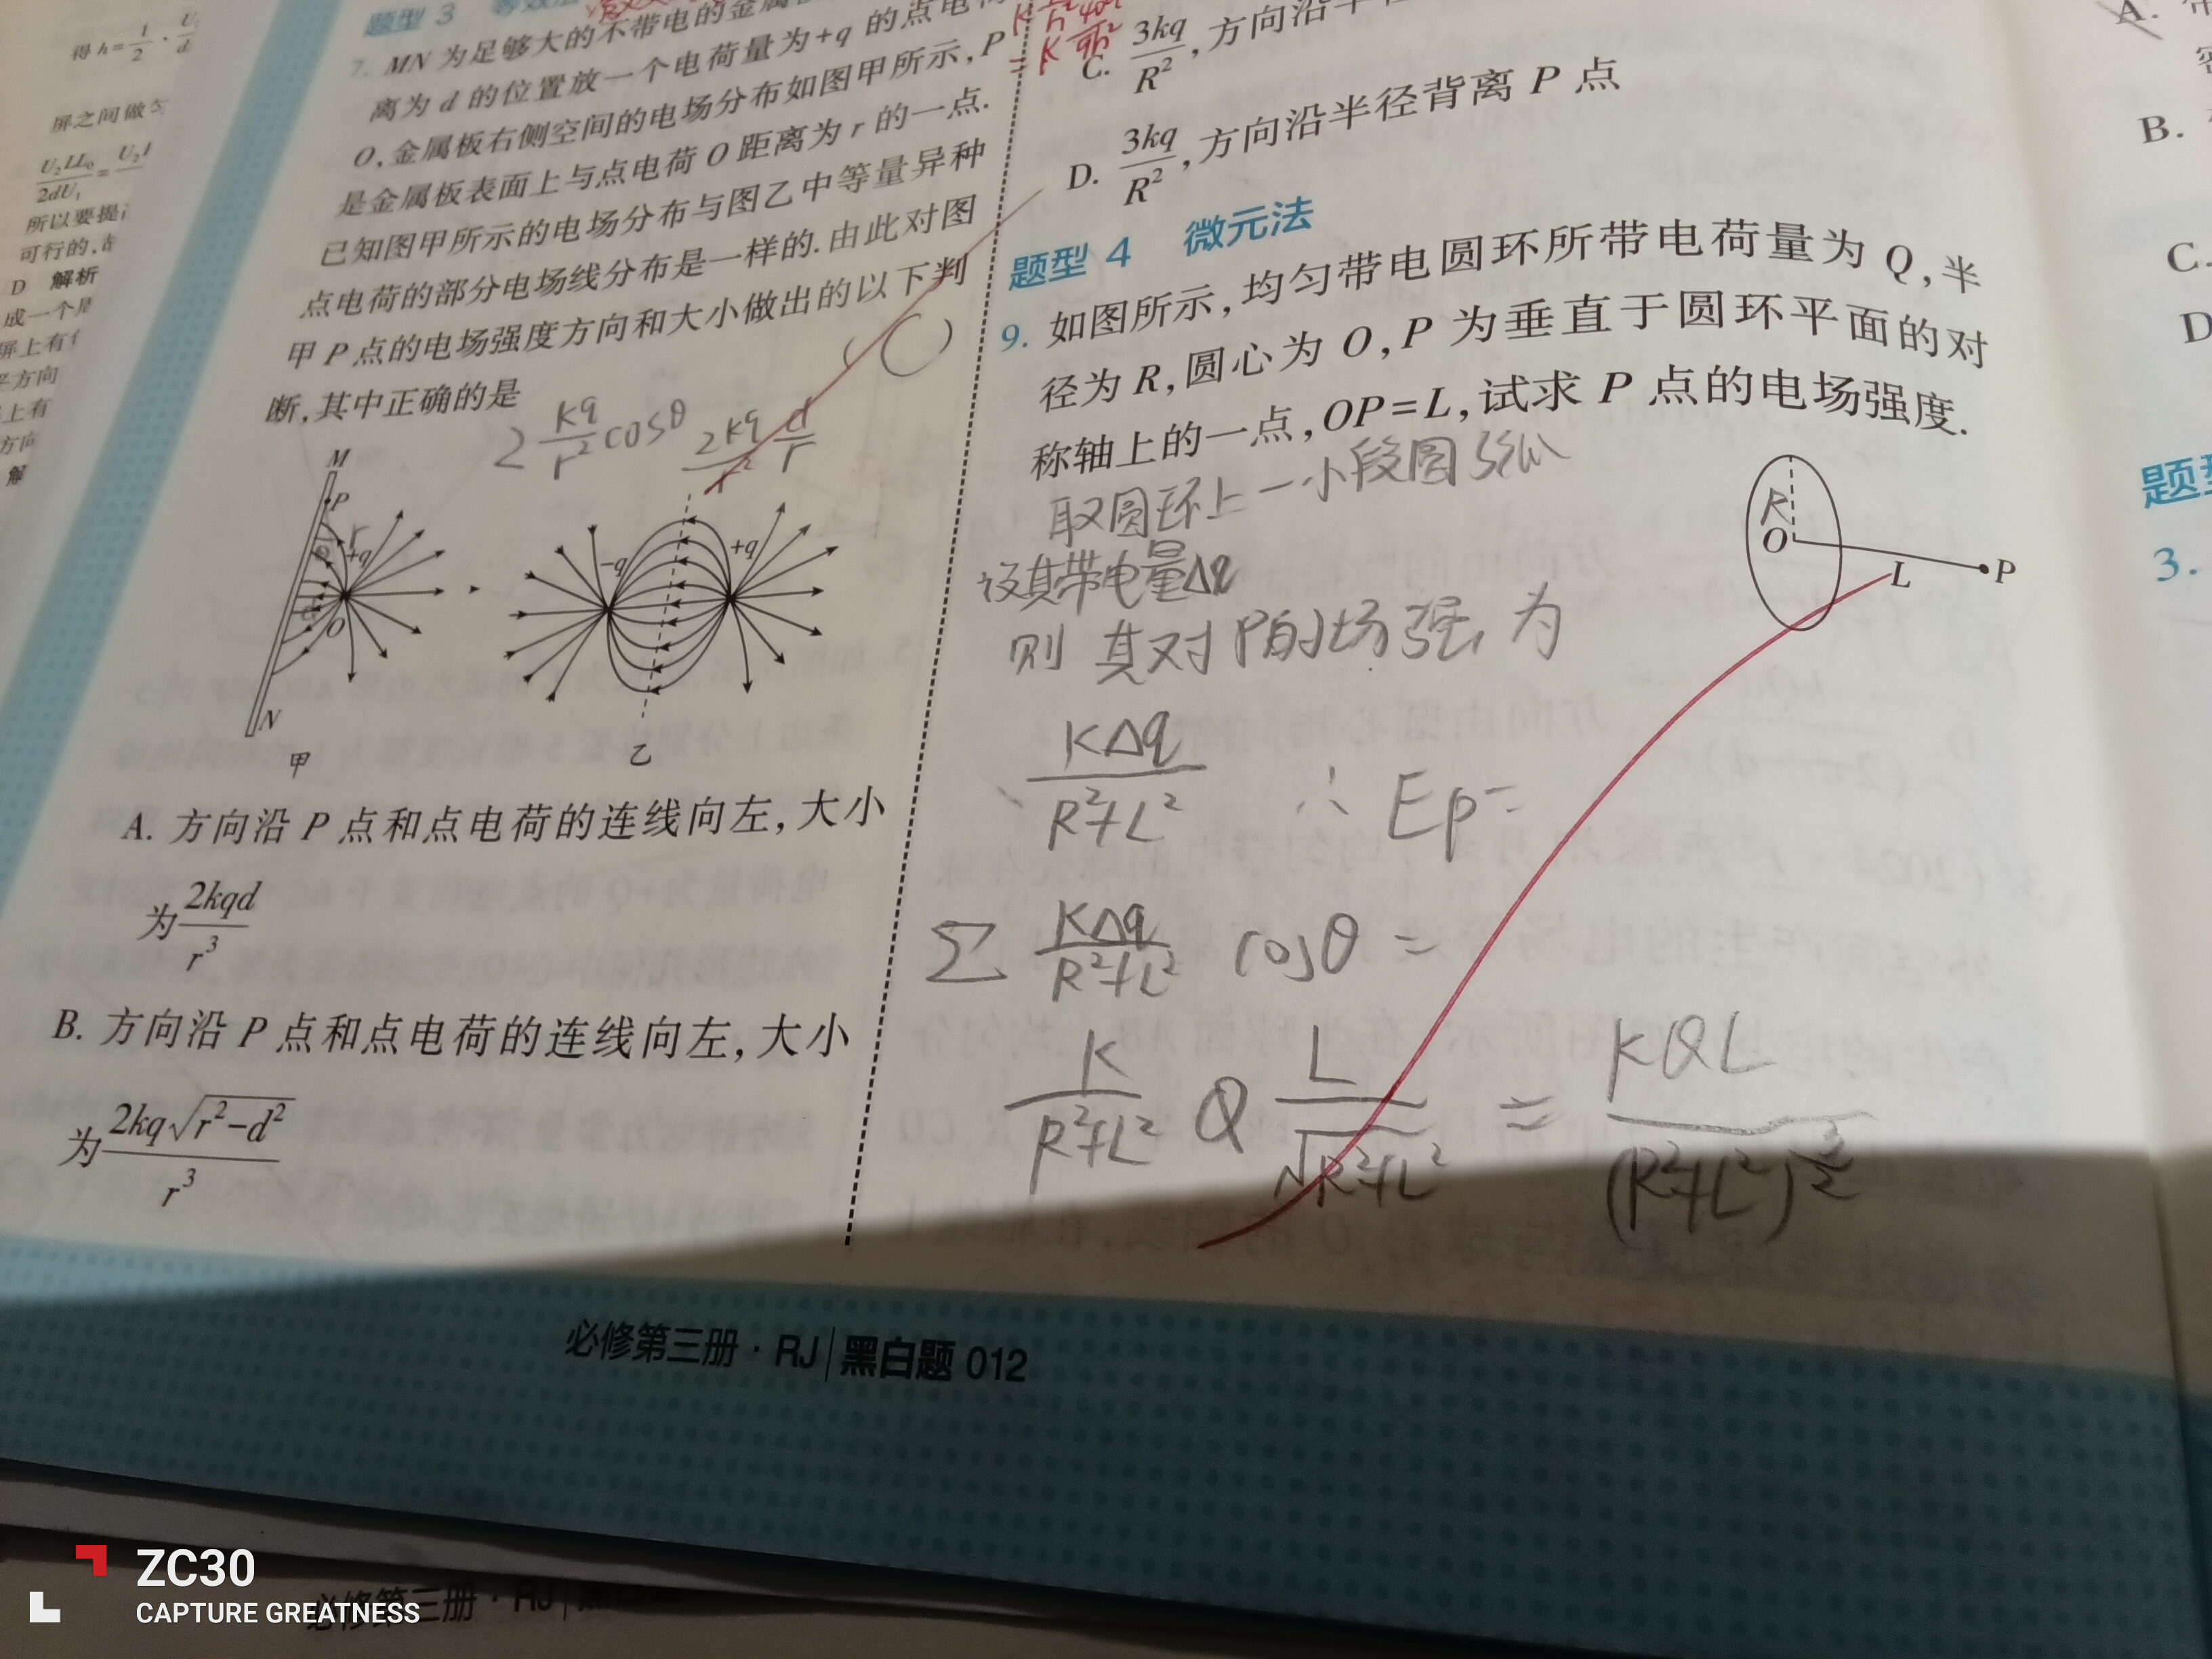 得 h=1/2 ·
屏之间做
U₂LL₀/2dU₁=
所以要提
可行的,
D 解析
成一个
屏上有
方向
上有
方向
解
题型 3
7. MN 为足够大的不带电的金属
离为 d 的位置放一个电荷量为+q 的点电
O,金属板右侧空间的电场分布如图甲所示,P
是金属板表面上与点电荷 O 距离为 r 的一点.
已知图甲所示的电场分布与图乙中等量异种
点电荷的部分电场线分布是一样的.由此对图
甲 P 点的电场强度方向和大小做出的以下判
断,其中正确的是 ( C )
2 kq/r² cosθ 2kq/r² d/r
M
P
r
+q
d
O
N
甲
-q
+q
乙
A. 方向沿 P 点和点电荷的连线向左,大小
为 2kqd/r³
B. 方向沿 P 点和点电荷的连线向左,大小
为 2kq√(r²-d²)/r³
C. 3kq/R²,方向沿半
D. 3kq/R²,方向沿半径背离 P 点
题型 4 微元法
9. 如图所示,均匀带电圆环所带电荷量为 Q,半
径为 R,圆心为 O,P 为垂直于圆环平面的对
称轴上的一点,OP=L,试求 P 点的电场强度.
R
O
L
P
取圆环上一小段圆弧
设其带电量Δq
则其对P的场强为
KΔq/(R²+L²) ∴ Ep=
Σ KΔq/(R²+L²) cosθ =
K/(R²+L²) Q L/√(R²+L²) = KQL/(R²+L²)^(3/2)
A.
B.
C.
D
题型
3.
必修第三册·RJ|黑白题 012
必修第三册·RJ|
ZC30
CAPTURE GREATNESS